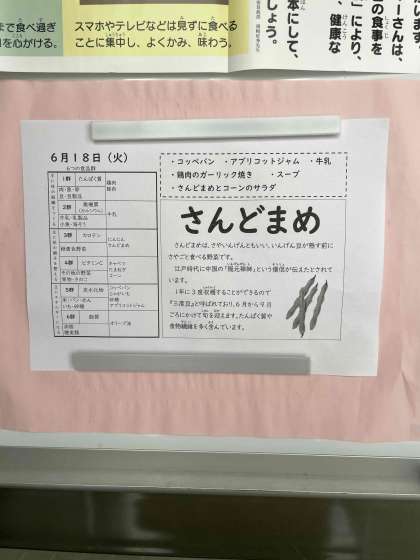 まで食べ過ぎ
を心がける。
スマホやテレビなどは見ずに食べる
ことに集中し、よくかみ、味わう。
しょう。
本にして、
」により、
、健康な
の食事を
ーさんは、
います。
6月18日（火）
6つの食品群
1群 たんぱく質
肉・魚・卵
豆・豆製品
鶏肉
2群 無機質
（カルシウム）
牛乳・乳製品
小魚・海そう
牛乳
3群 カロテン
緑黄色野菜
にんじん
さんどまめ
4群 ビタミンC
その他の野菜
果物・きのこ
キャベツ
たまねぎ
コーン
5群 炭水化物
米・パン・めん
いも・砂糖
コッペパン
じゃがいも
砂糖
アプリコットジャム
6群 脂質
油脂
種実類
オリーブ油
・コッペパン ・アプリコットジャム ・牛乳
・鶏肉のガーリック焼き ・スープ
・さんどまめとコーンのサラダ
さんどまめ
さんどまめは、さやいんげんともいい、いんげん豆が熟す前に
さやごと食べる野菜です。
江戸時代に中国の「隠元禅師」という僧侶が伝えたとされて
います。
1年に3度収穫することができるので
『三度豆』と呼ばれており、6月から9月
ごろにかけて旬を迎えます。たんぱく質や
食物繊維を多く含んでいます。